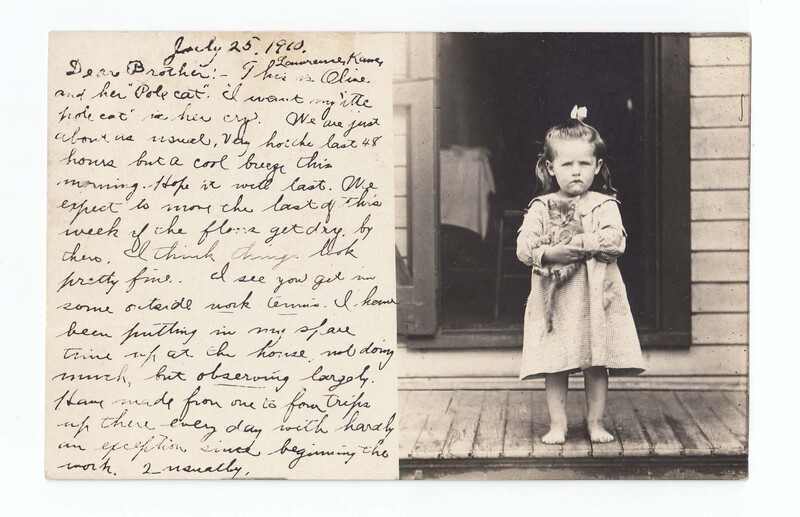 July 25. 1910.
Lawrence, Kans,
Dear Brother:- This is Olive
and her "Pole cat". "I want my 'itte
pole cat" is her cry. We are just
about as usual, Very hot the last 48
hours but a cool breeze this
morning. Hope it will last. We
expect to move the last of this
week if the floors get dry by
then. I think things look
pretty fine. I see you get in
some outside work tennis. I have
been putting in my spare
time up at the house, not doing
much, but observing largely.
Have made from one to four trips
up there every day with hardly
an exception since beginning the
work. 2 usually.